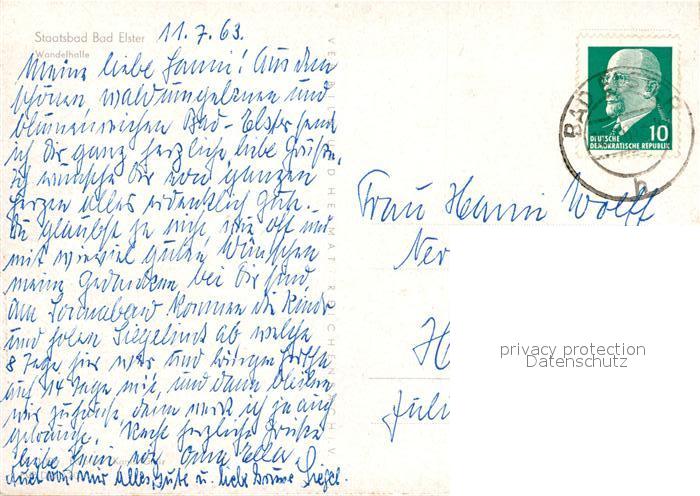 Staatsbad Bad Elster
Wandelhalle
11. 7. 63.
Meine liebe Hanni! Aus dem
schönen, waldumgebenen und
blumenreichen Bad-Elster sende
ich Dir ganz herzliche liebe Grüße,
ich wünsche Dir von ganzem
Herzen alles erdenklich Gute.
Du glaubst ja nicht, wie oft und
mit wieviel guten Wünschen
meine Gedanken bei Dir sind.
Am Sonnabend kommen die Kinder
und holen Sieglinde ab welche
8 Tage hier war und bringen
auf 14 Tage mit, und dann bleiben
wir zuhause, denn merk ich ja auch
Recht herzliche Grüße
liebe Hanni von Oma Ella
Auch von mir alles Gute u. liebe Grüße
BAD
h
DEUTSCHE
DEMOKRATISCHE REPUBLIK
10
Frau Hanni Wolff
Ner
H
Juli
privacy protection
Datenschutz